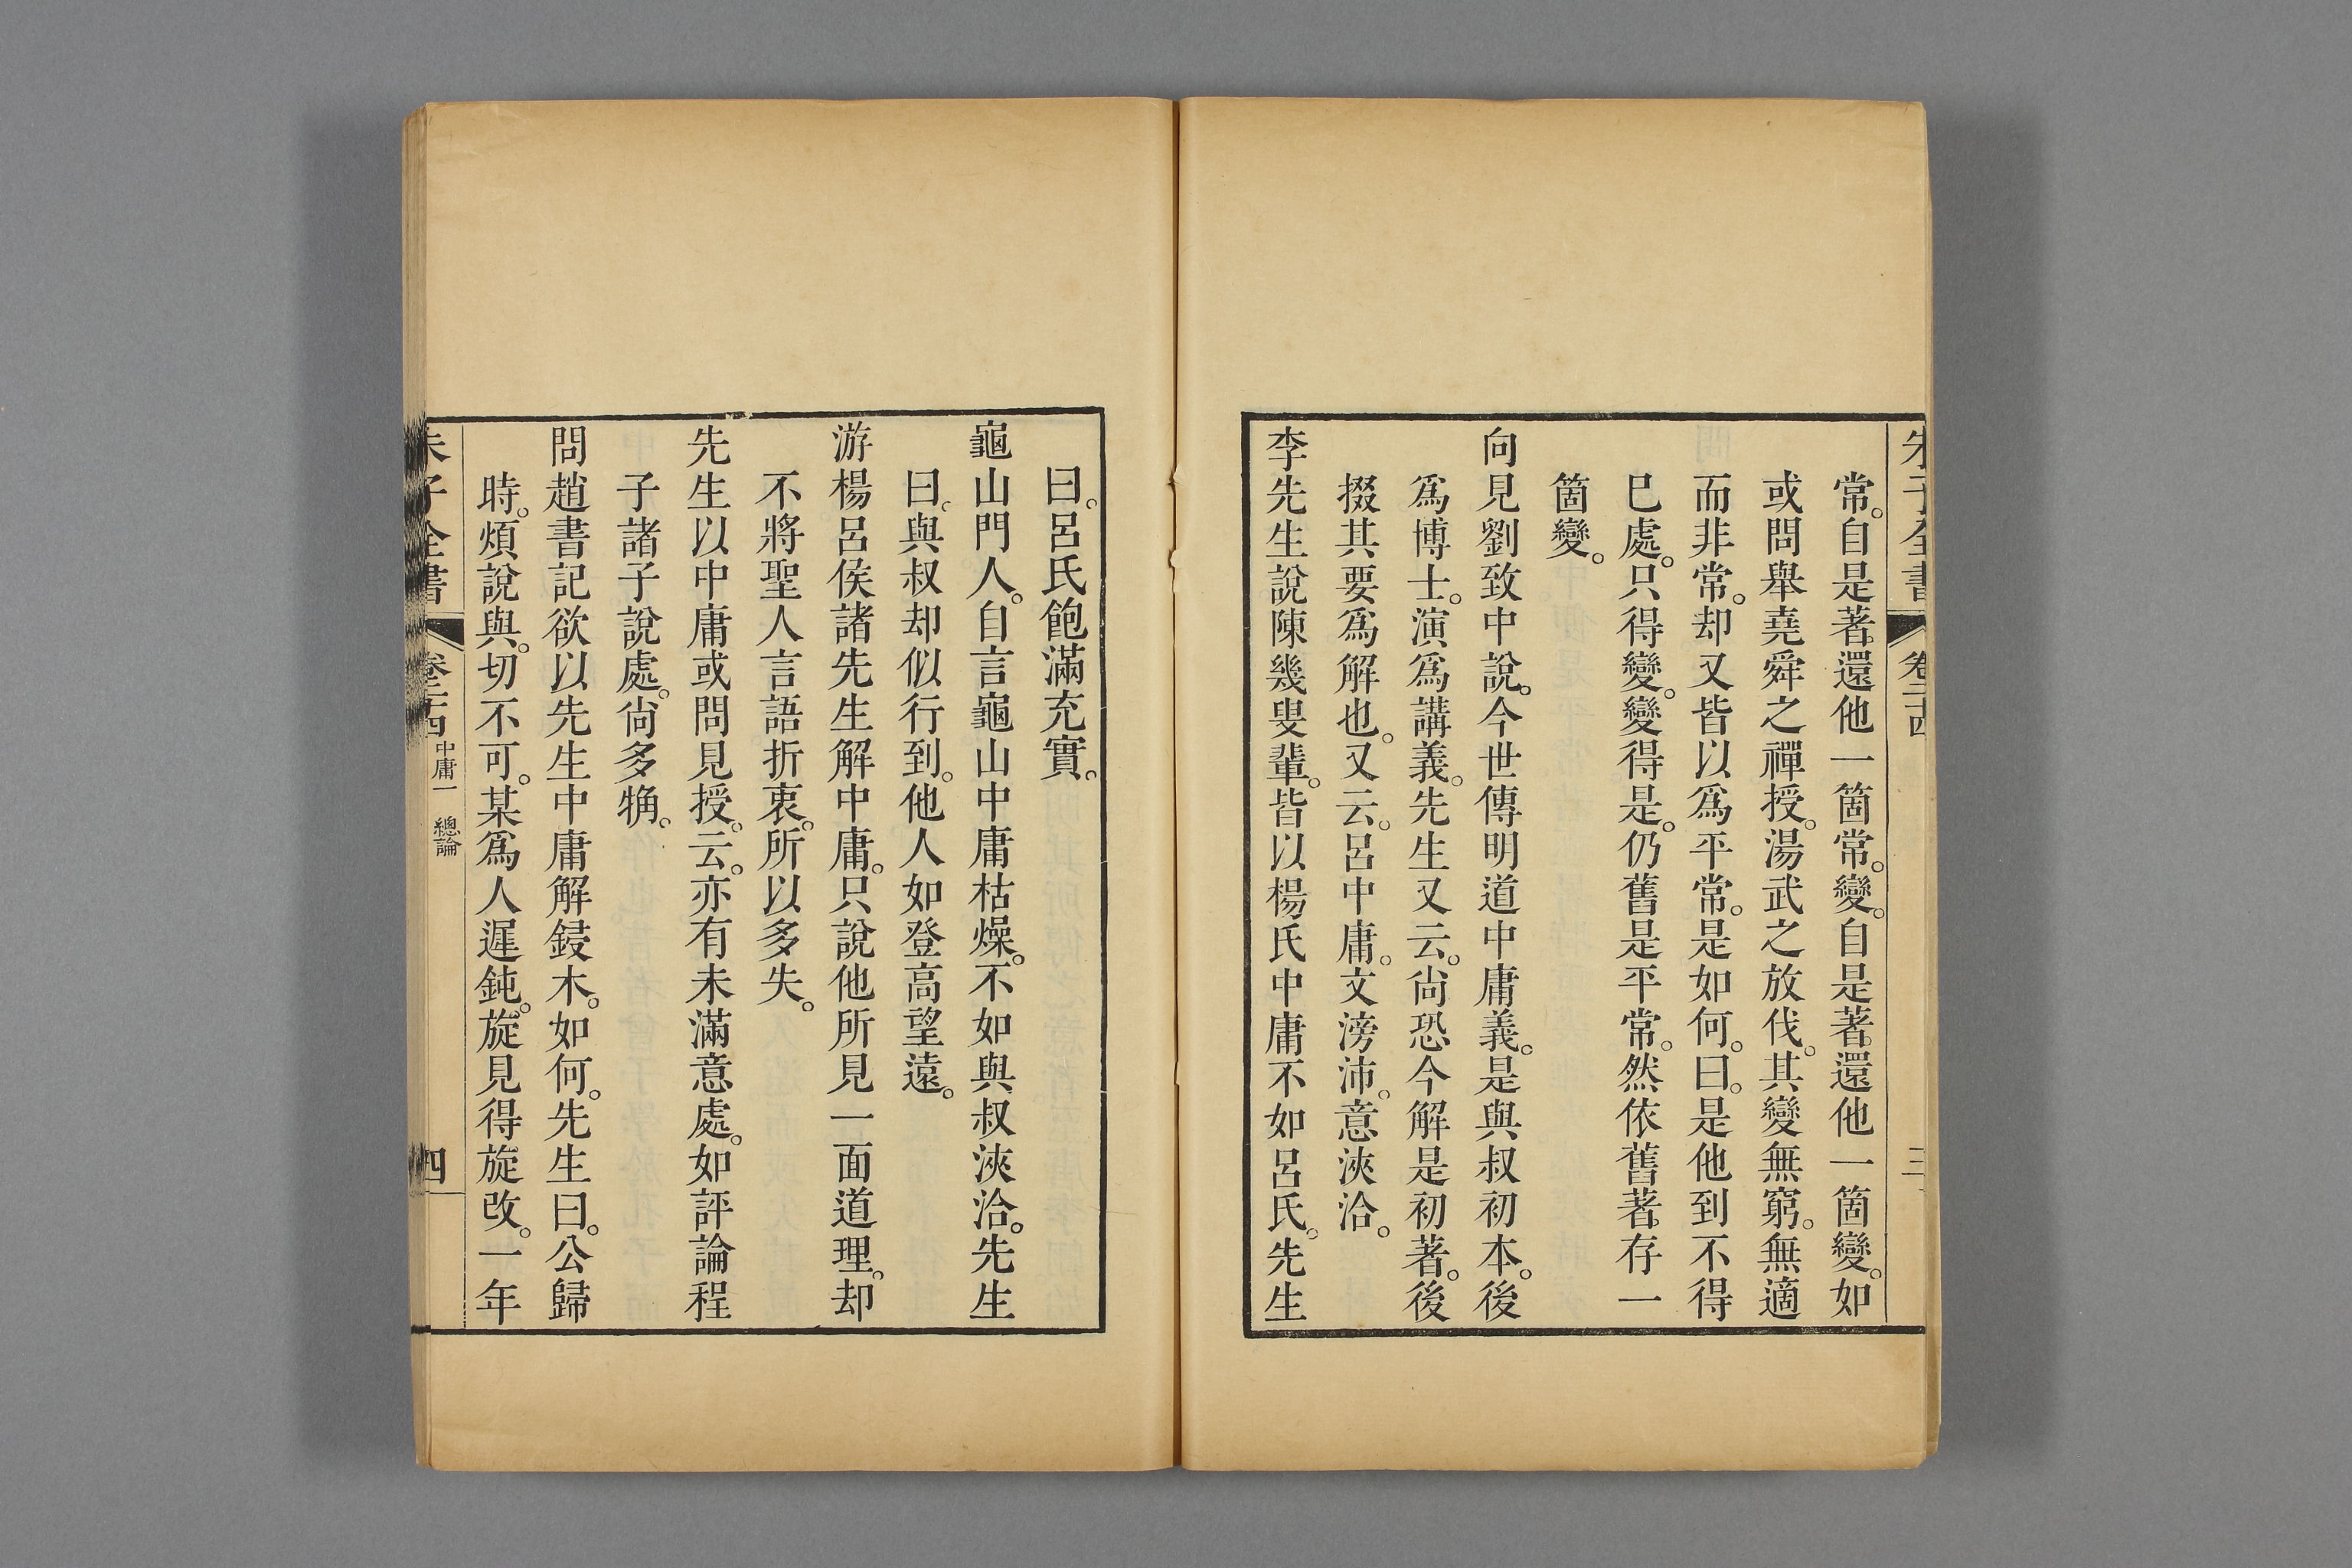 朱子全書 卷二十四 三
常。自是著。還他一箇常。變。自是著。還他一箇變。如
或問舉堯舜之禪授。湯武之放伐。其變無窮。無適
而非常。却又皆以爲平常。是如何。曰。是他到不得
已處。只得變。變得是。仍舊是平常。然依舊著。存一
箇變。
向見劉致中說。今世傳明道中庸義。是與叔初本。後
爲博士。演爲講義。先生又云。尙恐今解是初著。後
掇其要爲解也。又云。呂中庸。文滂沛。意浹洽。
李先生說陳幾叟輩。皆以楊氏中庸不如呂氏。先生
曰。呂氏飽滿充實。
龜山門人。自言龜山中庸枯燥。不如與叔浹洽。先生
曰。與叔却似行到。他人如登高望遠。
游楊呂侯諸先生解中庸。只說他所見一面道理。却
不將聖人言語折衷。所以多失。
先生以中庸或問見授。云。亦有未滿意處。如評論程
子諸子說處。尙多觕。
問趙書記欲以先生中庸解鋟木。如何。先生曰。公歸
時。煩說與。切不可。某爲人遲鈍。旋見得旋改。一年
朱子全書 卷二十四 中庸一 總論 四